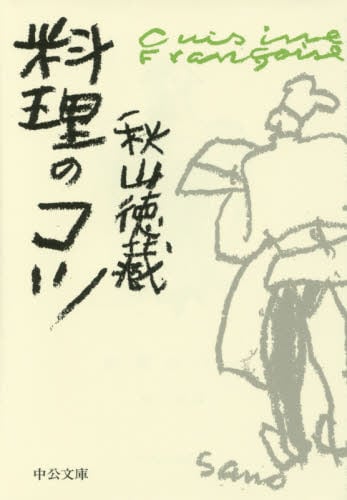 Cuisine
Française
料理のコツ
秋山徳蔵
中公文庫
Sano